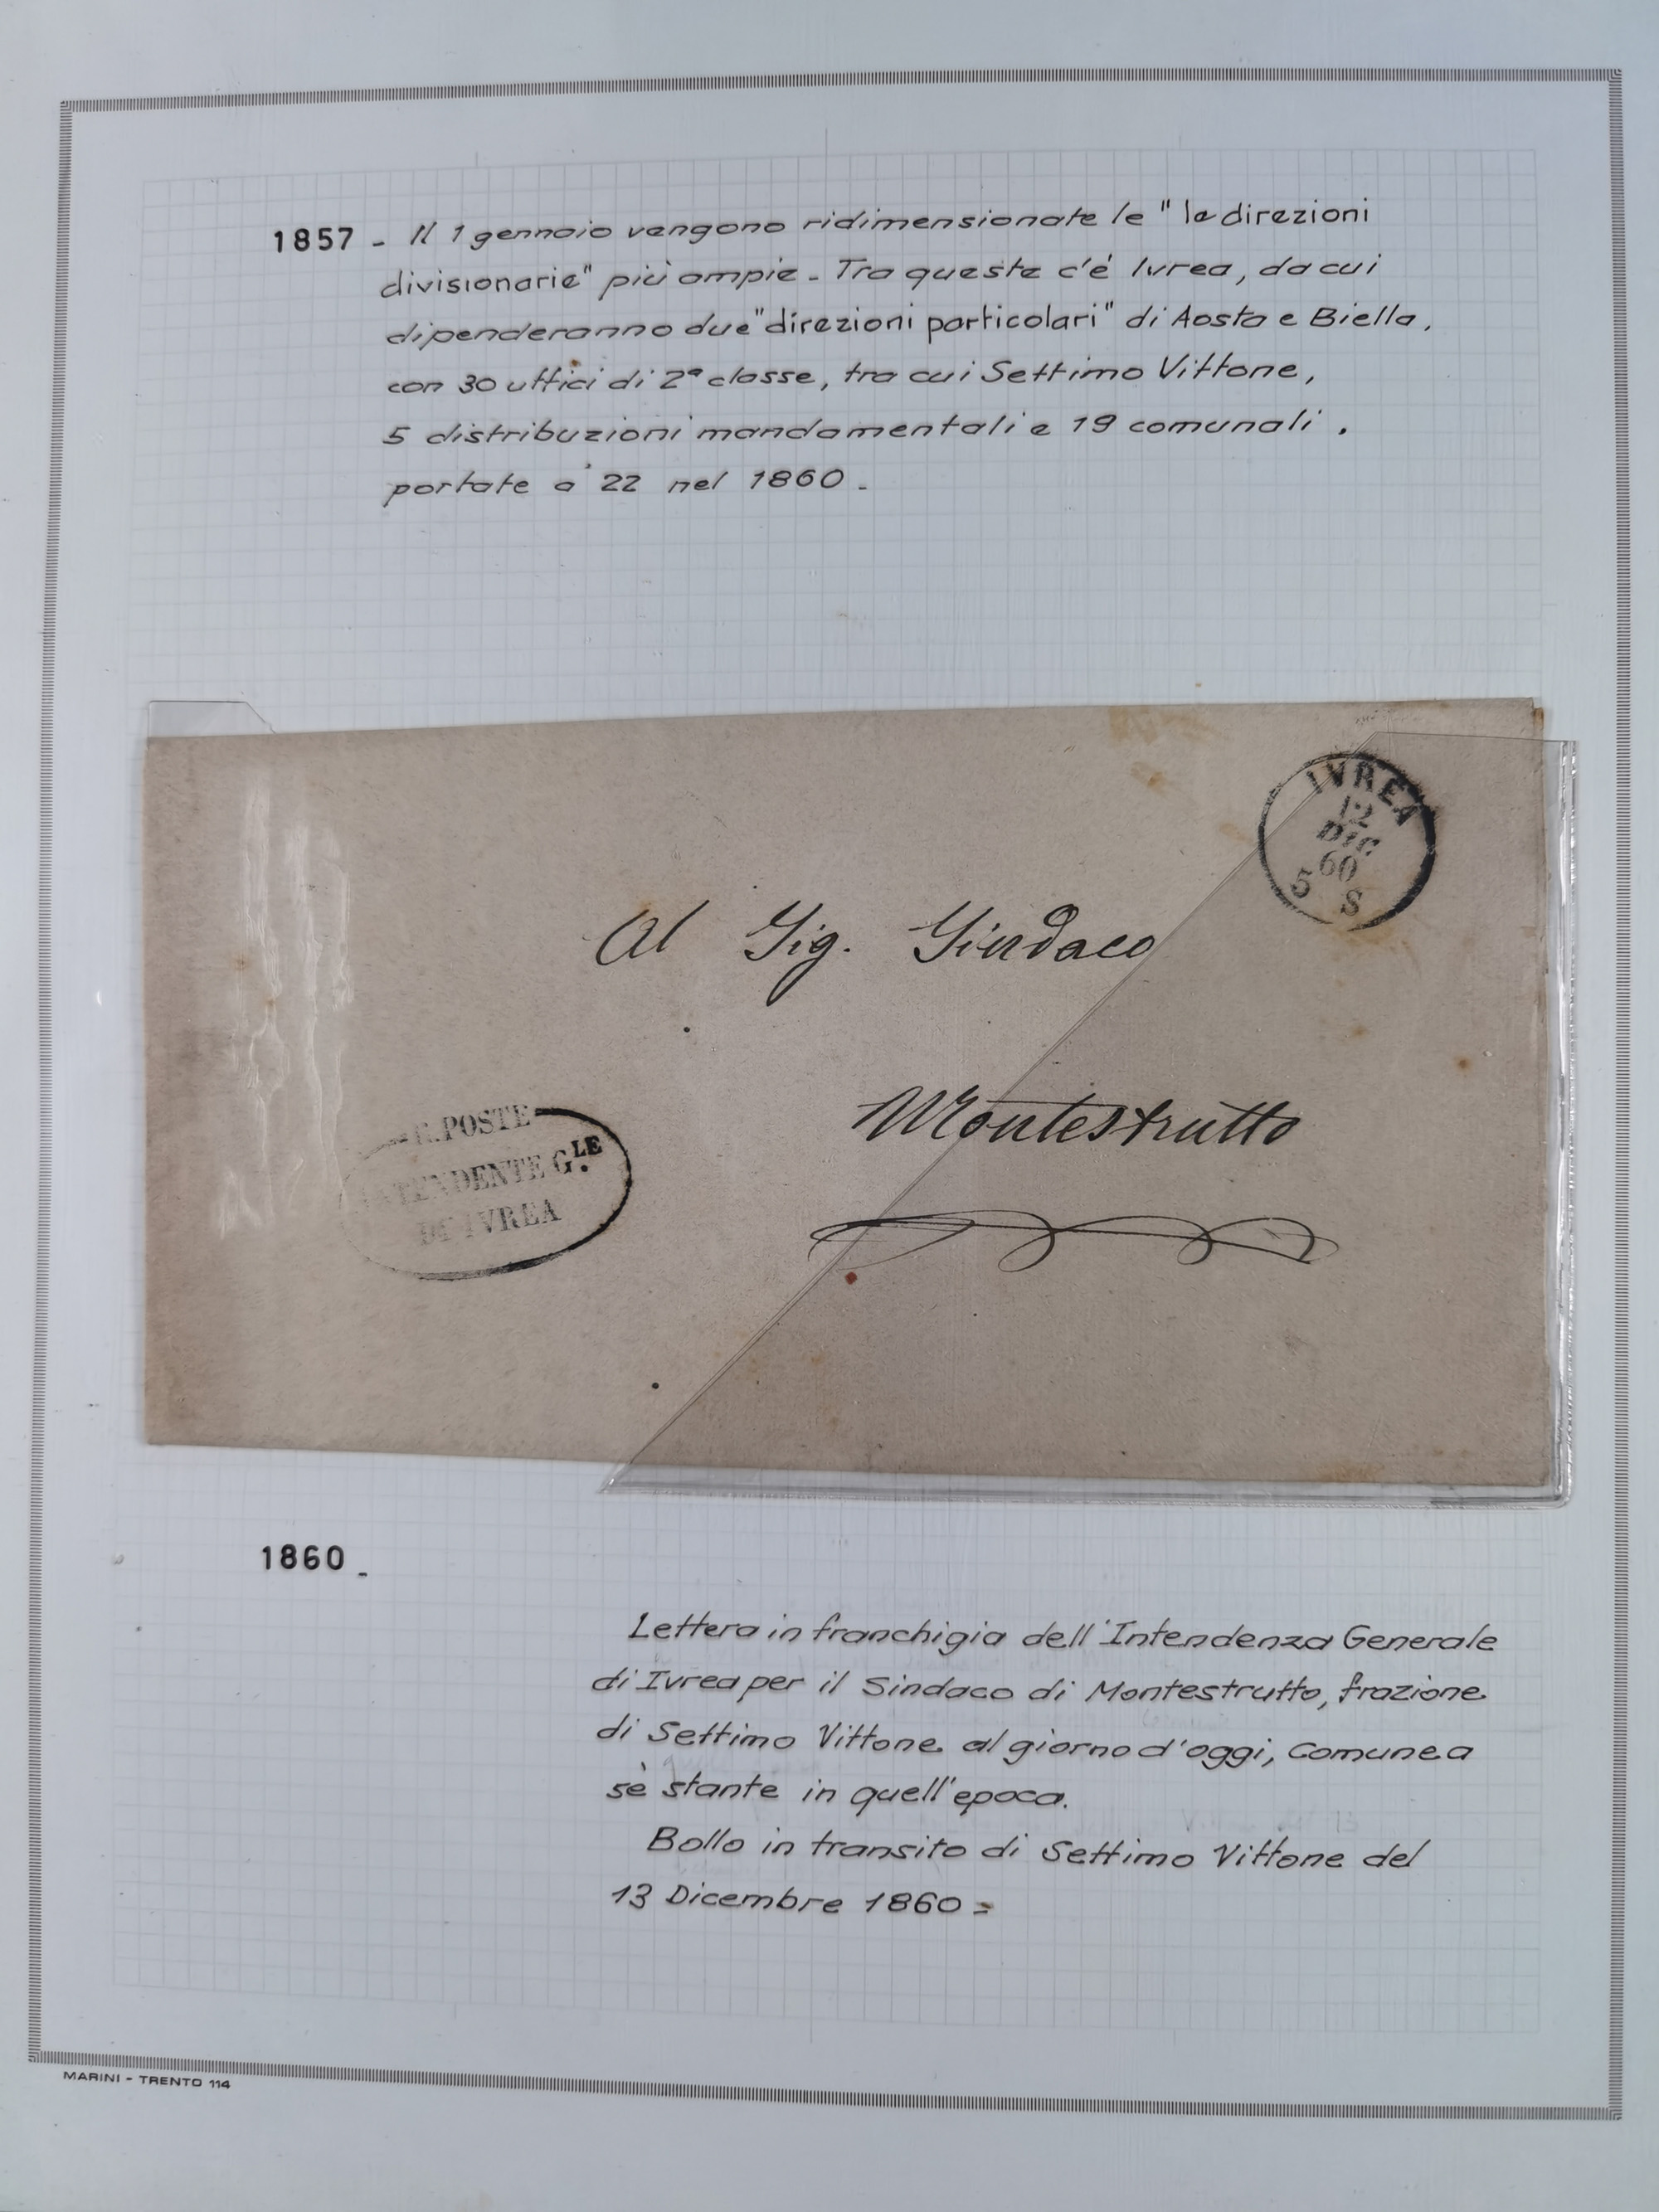 1857 - Il 1 gennaio vengono ridimensionate le " le direzioni
divisionarie" più ampie - Tra queste c'é Ivrea, da cui
dipenderanno due "direzioni particolari" di Aosta e Biella,
con 30 uffici di 2ª classe, tra cui Settimo Vittone,
5 distribuzioni mandamentali e 19 comunali,
portate a 22 nel 1860 -
IVREA
12
DIC
60
5 S
Al Sig. Sindaco
Montestrutto
R. POSTE
INTENDENTE G.LE
DI IVREA
1860 -
Lettera in franchigia dell'Intendenza Generale
di Ivrea per il Sindaco di Montestrutto, frazione
di Settimo Vittone al giorno d'oggi, Comune a
sè stante in quell'epoca.
Bollo in transito di Settimo Vittone del
13 Dicembre 1860 =
MARINI - TRENTO 114